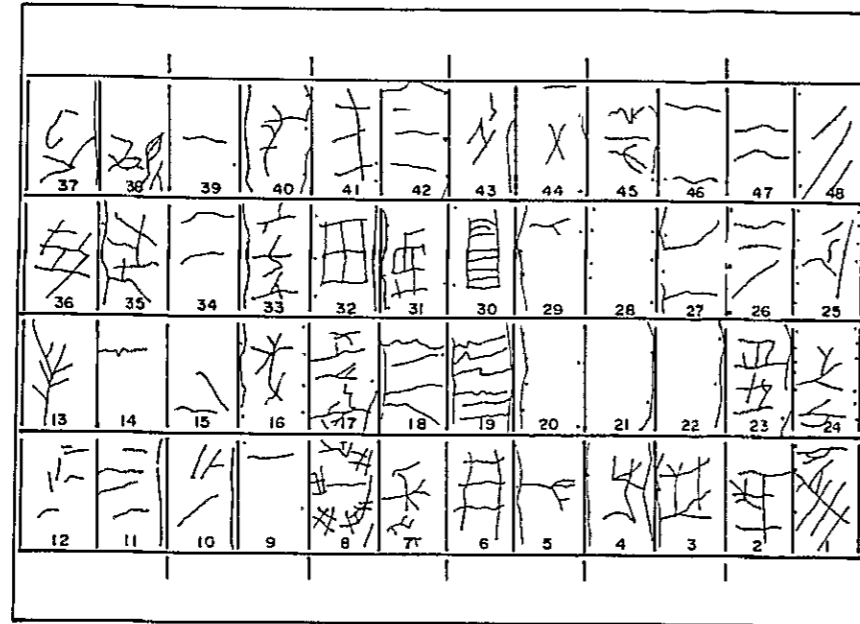 37 38 39 40 41 42 43 44 45 46 47 48
36 35 34 33 32 31 30 29 28 27 26 25
13 14 15 16 17 18 19 20 21 22 23 24
12 11 10 9 8 7 6 5 4 3 2 1